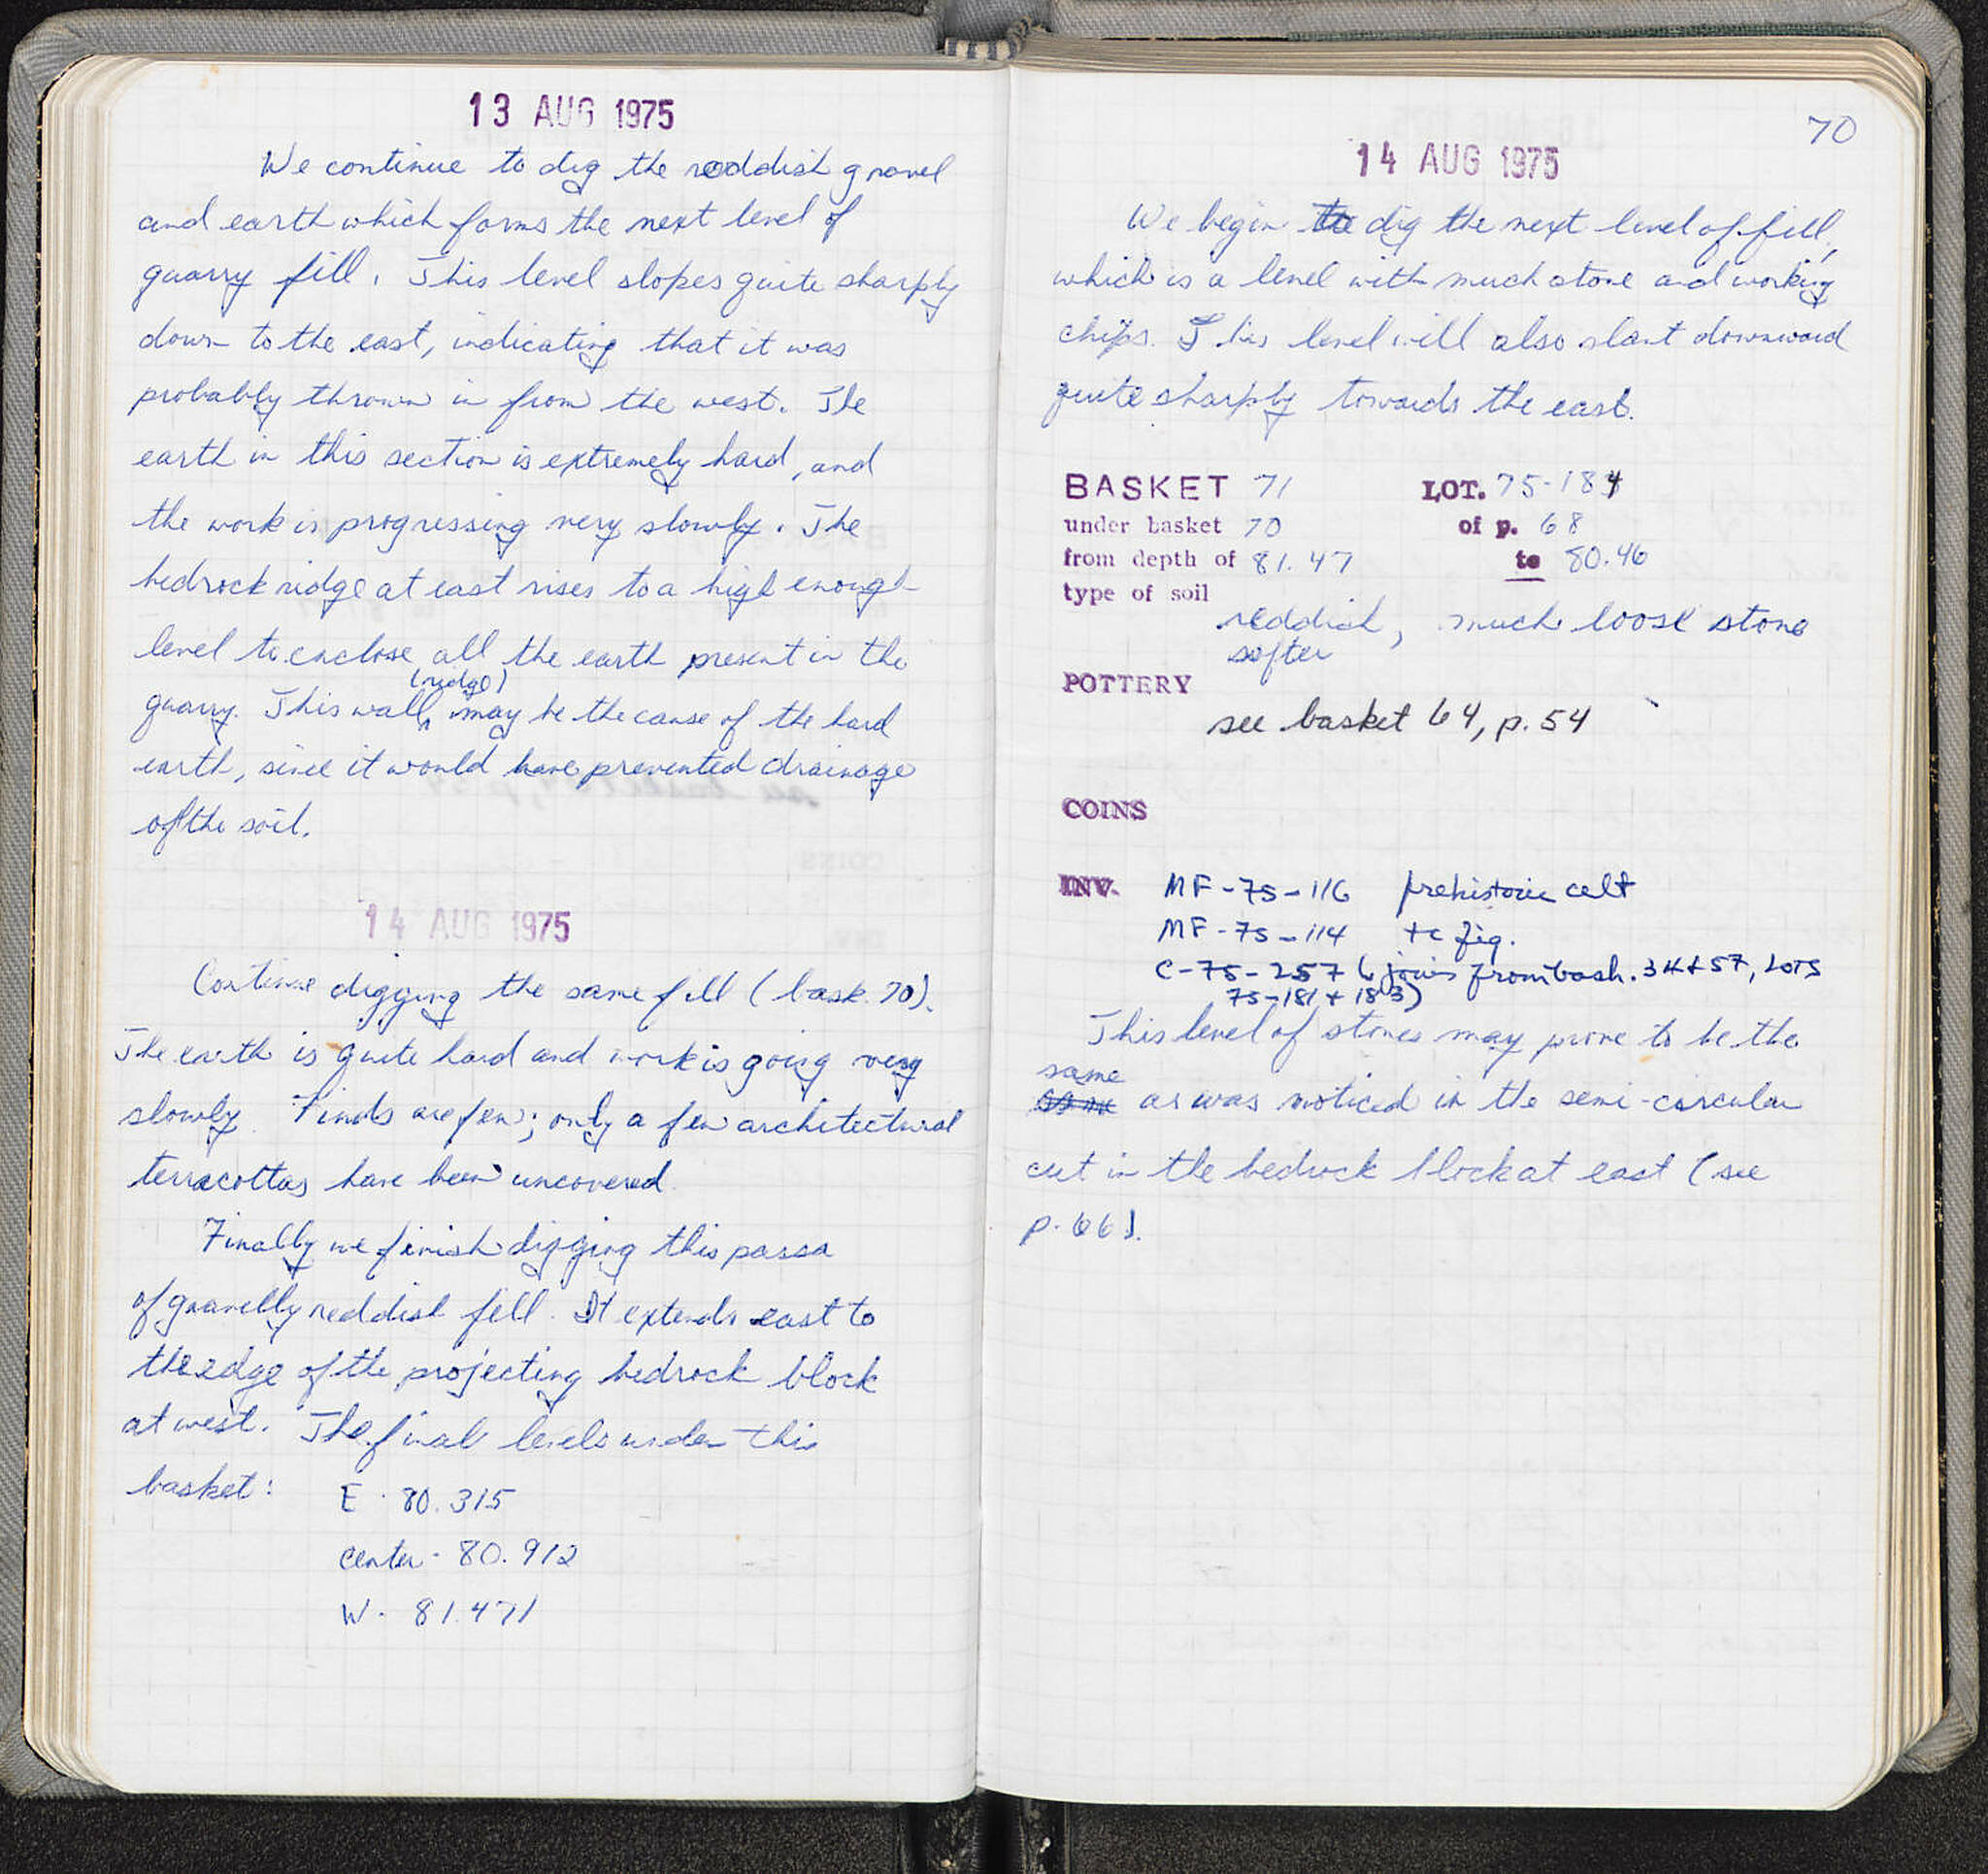 13 AUG 1975
We continue to dig the reddish gravel
and earth which forms the next level of
quarry fill. This level slopes quite sharply
down to the east, indicating that it was
probably thrown in from the west. The
earth in this section is extremely hard, and
the work is progressing very slowly. The
bedrock ridge at east rises to a high enough
level to enclose all the earth present in the
quarry. This wall (ridge) may be the cause of the hard
earth, since it would have prevented drainage
of the soil.
14 AUG 1975
Continue digging the same fill (bask. 70).
The earth is quite hard and work is going very
slowly. Finds are few; only a few architectural
terracottas have been uncovered.
Finally we finish digging this passa
of gravelly reddish fill. It extends east to
the edge of the projecting bedrock block
at west. The final levels under this
basket:
E - 80.315
center - 80.912
W - 81.471
70
14 AUG 1975
We begin to dig the next level of fill,
which is a level with much stone and working
chips. This level will also slant downward
quite sharply towards the east.
BASKET 71 LOT. 75-184
under basket 70 of p. 68
from depth of 81.47 to 80.46
type of soil
reddish, much loose stone
softer
POTTERY
see basket 64, p. 54
COINS
INV. MF-75-116 prehistoric celt
MF-75-114 tc fig.
C-75-257 (joins from bask. 34+57, LOTS
75-181+183)
This level of stones may prove to be the
same as was noticed in the semi-circular
cut in the bedrock block at east (see
p. 66).